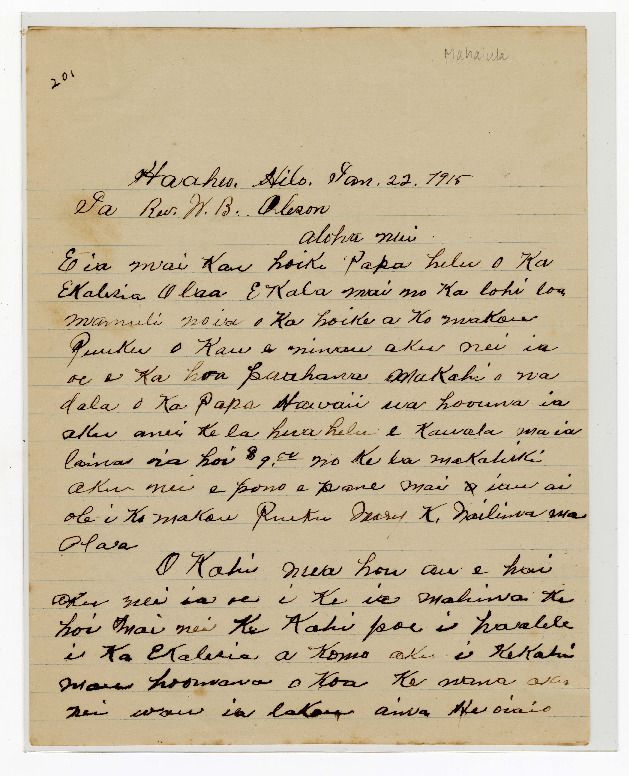 Mahaiula
201
Haaheo. Hilo. Jan. 22. 1915
To Rev. W. B. Oleson
aloha nui
Eia mai kau hoike Papa helu o Ka
Ekalesia Olaa E Kala mai no Ka lohi loa
mamuli no ia o Ka hoike a Ko makou
Puuku o Kau e ninau aku nei ia
oe e Ka hoa Paahana Makahi o na
dala o Ka Papa Hawaii ua hoouna ia
aku anei Ke la huahelu e Kawala ma ia
laina oia hoi $9.00 no Ke la makahiki
aku nei e pono e pane mai iau ai
ole i Ko makou Puuku Mary K. Nailima ma
Olaa
O Kahi mea hou au e hai
aku nei ia oe i Ke ia mahina Ke
hoi mai nei Ke Kahi poe i haalele
i Ka Ekalesia a Komo aku i Kekahi
mau hoomana o Koa Ke nana aku
nei wau ia lakou aina He oiaio